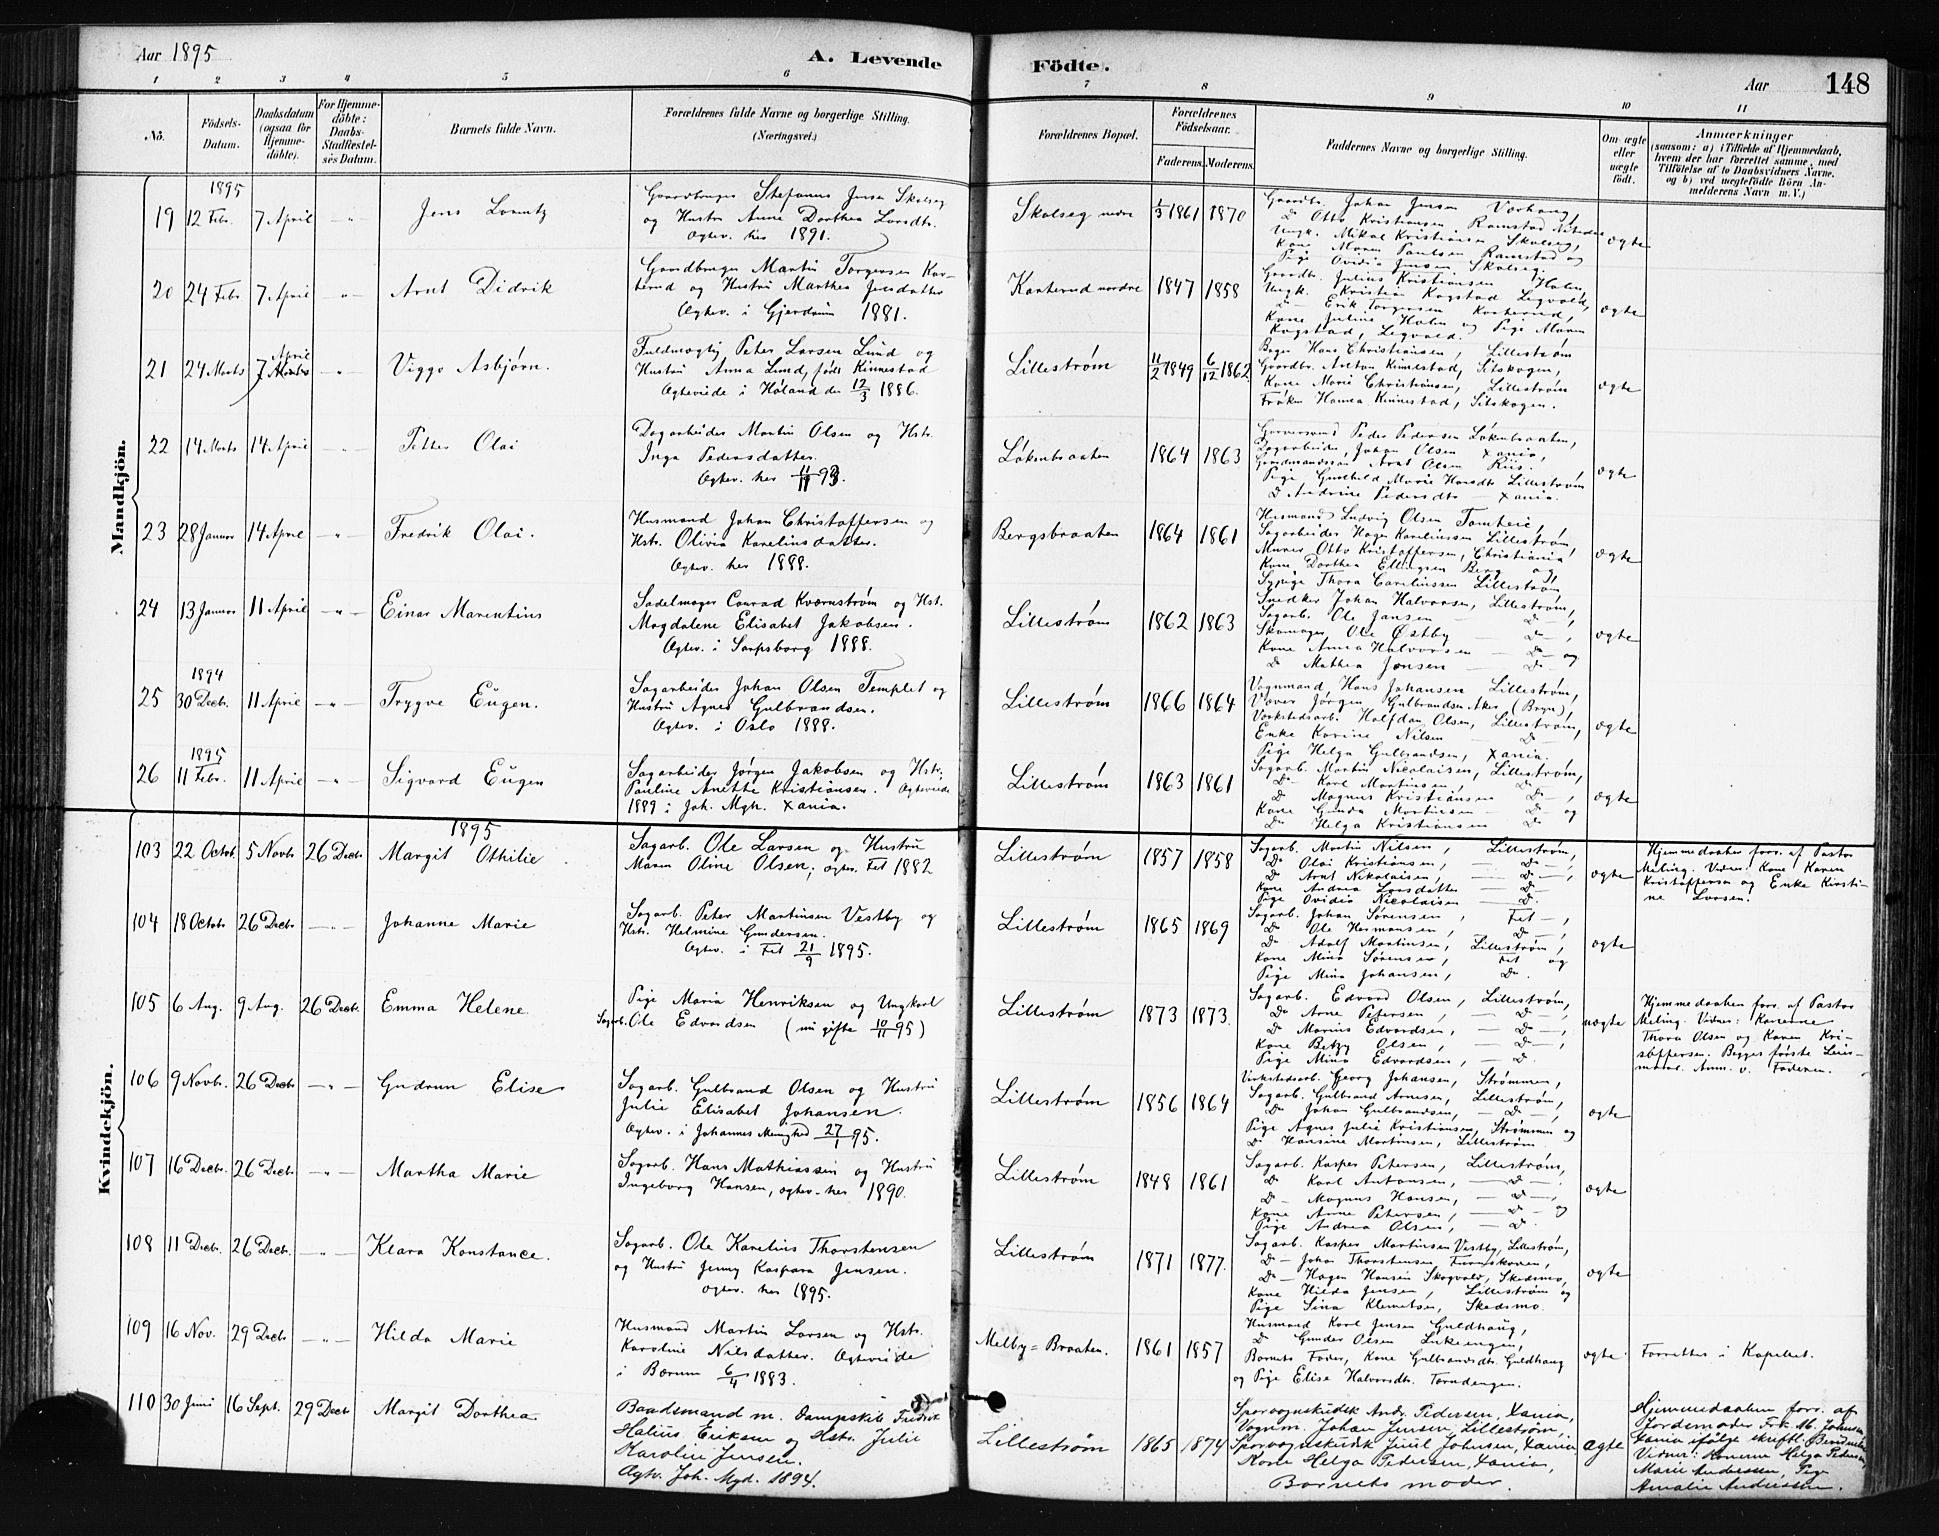 Aar 1895
A. Levende Födte.
Aar 148
1 2 3 4 5 6 7 8 9 10 11
No.
Födsels-Datum.
Daabsdatum (ogsaa for Hjemmedöbte).
For Hjemmedöbte: Daabs-Stadfæstelses Datum.
Barnets fulde Navn.
Forældrenes fulde Navne og borgerlige Stilling.
(Næringsvei.)
Forældrenes Bopæl.
Forældrenes Födselsaar.
Faderens. Moderens.
Faddernes Navne og borgerlige Stilling.
Om ægte eller uægte födt.
Anmærkninger
(saasom: a) i Tilfælde af Hjemmedaab, hvem der har forrettet samme, med Tilföielse af to Daabsvidners Navne, og b) ved uægtefödte Börn Anmelderens Navn m. V.)
Mandkjön.
1895
19 12 Febr. 7 April Jens Lorentz
Gaardbruger Stefanus Jensen Skolseg
og Hustru Anne Dorthea Larsdtr.
Ægtev. her 1891.
Skolseg nedre 1/3 1861 1870
Gaardbr. Johan Jensen Vorhaug,
Do Otto Kristiansen Ramstad Nitedal
Ungk. Mikal Kristiansen Skolseg,
Kone Maren Paulsen Ramstad og
Pige Ovidia Jensen Skolseg.
ægte
20 24 Febr. 7 April Arnt Didrik
Gaardbruger Martin Torgersen Kar-
terud og Hustru Marthea Jensdatter
Ægtev. i Gjerdrum 1881.
Karterud nordre 1847 1858
Gaardbr. Julius Kristiansen Holm,
Ungk. Kristian Kogstad Legvold,
Do Erik Torgersen Karterud,
Kone Juline Holm og Pige Maren
Kogstad, Legvold.
ægte
21 24 Marts 7 April Viggo Asbjørn.
Fuldmægtig Peter Larsen Lund og
Hustru Anna Lund, født Kinnestad
Ægteviede i Høland den 12/3 1886.
Lillestrøm 11/2 1849 6/12 1862
Bager Hans Christiansen, Lillestrøm
Gaardbr. Anton Kinnestad, Sitskogen,
Kone Marie Christiansen, Lillestrøm
Frøken Hanna Kinnestad, Sitskogen.
ægte
22 14 Marts 14 April Petter Olai
Dagarbeider Martin Olsen og Hstr.
Inga Pedersdatter.
Ægtev. her 93.
Løkenbraaten 1864 1863
Peder Pedersen Løkenbraaten,
Dagarbeider Johan Olsen Xania,
Gaardmandssøn Arnt Olsen Riis.
Pige Gunhild Marie Hansdtr Lillestrøm
Do Andrine Pedersdtr Xania.
ægte
23 28 Januar 14 April Fredrik Olai.
Husmand Johan Christoffersen og
Hstr. Olivia Karelinsdatter.
Ægtev. her 1888.
Bergsbraaten 1864 1861
Husmand Ludvig Olsen Tomteie,
Sagarbeider Hagen Kareliussen Lillestrøm,
Murer Otto Kristoffersen, Christiania
Kone Dorthea Ellingsen Berg og
Sypige Thora Careliussen Lillestrøm
ægte
24 13 Januar 11 April Einar Marentius
Sadelmager Conrad Kværnstrøm og Hst.
Magdalene Elisabet Jakobsen.
Ægtev. i Sarpsborg 1888.
Lillestrøm 1862 1863
Snedker Johan Halvorsen, Lillestrøm,
Sagarb. Ole Jansen — Do —,
Skomager Ole Østby — Do —,
Kone Anna Halvorsen — Do — og
Do Mathea Jansen — Do
ægte
1894
25 30 Decbr. 11 April Trygve Eugen.
Sagarbeider Johan Olsen Templet og
Hustru Agnes Gulbrandsen.
Ægtev. i Oslo 1888.
Lillestrøm 1866 1864
Vognmand Hans Johansen Lillestrøm,
Væver Jørgen Gulbrandsen Aker (Bryn),
Verkstedsarb. Halfdan Olsen, Lillestrøm,
Enke Karine Nilsen Do
Pige Helga Gulbrandsen, Xania.
ægte
1895
26 11 Febr. 11 April Sigvard Eugen
Sagarbeider Jørgen Jakobsen og Hstr.
Pauline Anette Kristiansen. Ægteviede
1889 i Joh. Mgh. Xania.
Lillestrøm 1863 1861
Sagarb. Martin Nicolaisen, Lillestrøm,
Do Karl Martinsen, Do
Do Magnus Kristiansen Do —,
Kone Gunda Martinsen — Do — og
Do Helga Kristiansen Do
ægte
Kvindekjön.
1895
103 22 Octob. 5 Novb. 26 Decb. Margit Othilie
Sagarb. Ole Larsen og Hustru
Maren Oline Olsen, ægtev. Fet 1882
Lillestrøm 1857 1858
Sagarb. Martin Nilsen, Lillestrøm,
Do Olai Kristiansen, — Do —,
Do Arnt Nikolaisen, — Do —,
Kone Andrea Larsdatter — Do —
Pige Ovidia Nicolaisen — Do.
ægte
Hjemmedaaben forr. af Pastor
Meling. Vidner: Kone Karen
Kristoffersen og Enke Kirsti-
ne Larsen.
104 18 Octob. 26 Decbr. Johanne Marie
Sagarb. Peter Martinsen Vestby og
Hstr. Helmine Gundersen.
Ægtev. i Fet 21/9 1895.
Lillestrøm 1865 1869
Sagarb. Johan Sørensen, Fet —,
Do Ole Hermansen, Do —,
Do Adolf Martinsen, Lillestrøm,
Kone Mina Sørensen, Fet og
Pige Mina Johansen, Do.
ægte
105 6 Aug. 9 Aug. 26 Decbr. Emma Helene
Pige Maria Henriksen og Ungkarl
Sagarb. Ole Edvardsen (nu gifte 10/11 95)
Lillestrøm 1873 1873
Sagarb. Edvard Olsen, Lillestrøm,
Do Arne Petersen, — Do —,
Do Marius Edvardsen, — Do —,
Kone Betzy Olsen, — Do —,
Pige Mina Edvardsen, — Do.
uægte
Hjemmedaaben forr. af Pastor
Meling. Vidner: Konerne
Thora Olsen og Karen Kri-
stoffersen. Begges første Leier-
maal. Anm. v. Faderen.
106 9 Novb. 26 Decbr. Gudrun Elise
Sagarb. Gulbrand Olsen og Hustru
Julie Elisabet Johansen.
Ægtev. i Johannes Menighed 27/1 95.
Lillestrøm 1856 1864
Virkstedsarb. Georg Johansen, Strømmen,
Sagarb. Gulbrand Arnesen, Lillestrøm,
Do Johan Gulbrandsen, — Do —,
Pige Agnes Julie Kristiansen, Strømmen og
Do Hansine Martinsen, Lillestrøm
ægte
107 16 Decbr. 26 Decbr. Martha Marie
Sagarb. Hans Mathiassen og Hustru
Ingeborg Hansen, ægtev. her 1890.
Lillestrøm 1848 1861
Sagarb. Kasper Petersen, Lillestrøm,
Do Karl Antonsen, — Do —,
Do — Magnus Hansen, — Do —,
Kone Anne Petersen, — Do — og
Pige Andrea Olsen, — Do.
ægte
108 11 Decbr. 26 Decbr. Klara Konstance.
Sagarb. Ole Karelius Thorstensen
og Hustru Jenny Kaspara Jensen.
Ægtev. her 1895.
Lillestrøm 1871 1877.
Sagarb. Kasper Martinsen Vestby, Lillestrøm,
Do — Johan Thorstensen
Do — Hagen Hansen Skogvold, Skedsmo,
Kone Hilda Jensen, Lillestrøm og
Pige Sina Klemetsen, Skedsmo.
ægte
109 16 Nov. 29 Decbr. Hilda Marie
Husmand Martin Larsen og Hstr.
Karoline Nilsdatter. Ægteviede
i Bærum 6/4 1883.
Melby-Braaten. 1861 1857
Husmand Karl Jensen Guldhaug,
Do Gunder Olsen
Barnets Fader, Kone Gulbrandsdtr. Guldhaug
og Pige Elise Halvorsdtr. Torndengen.
ægte
Forrettet i Kapellet.
110 30 Juni 16 Sept. 29 Decbr Margit Dorthea
Baadsmand m. Dampskib Fredrik
Halius Eriksen og Hstr. Julie
Karoline Jensen.
Ægtv. Joh. Mgd. 1894.
Lillestrøm 1865 1874
Sporvognskudsk Andr. Pedersen, Xania,
Vognm. Johan Jensen, Lillestrøm,
Sporvognskudsk Juul Johnsen, Xania
Kone Helga Pedersen, Xania,
Barnets moder.
ægte
Hjemmedaaben forr. af
Jordemoder Frk. M. Johnsen
Xania ifølge skriftl.
Vidner: Konerne Helga Pedersen,
Marie Andreassen, Pige
Amalie Andreassen.